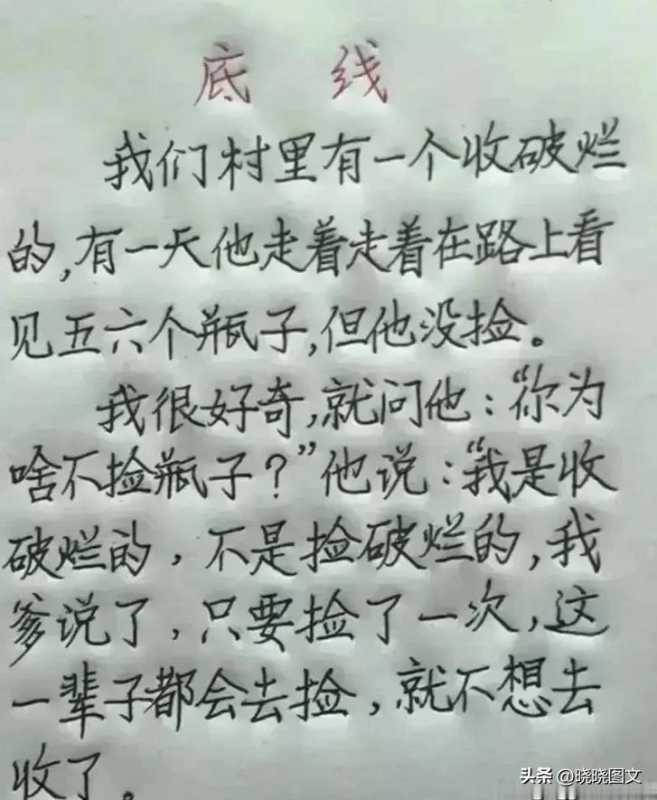 底 线
我们村里有一个收破烂
的,有一天他走着走着在路上看
见五六个瓶子,但他没捡。
我很好奇,就问他:“你为
啥不捡瓶子?”他说:“我是收
破烂的,不是捡破烂的,我
爹说了,只要捡了一次,这
一辈子都会去捡,就不想去
收了。
头条 @晓晓图文